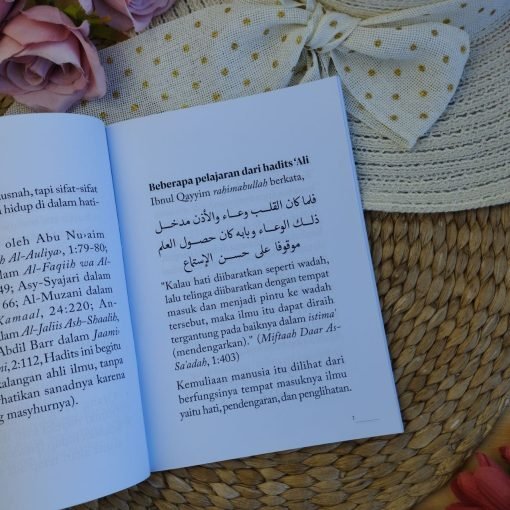 usnah, tapi sifat-sifat
hidup di dalam hati-
oleh Abu Nu›aim
Al-Auliya›, 1:79-80;
lam Al-Faqiih wa Al-
49; Asy-Syajari dalam
66; Al-Muzani dalam
Kamaal, 24:220; An-
dalam Al-Jaliis Ash-Shaalih,
Abdil Barr dalam Jaami-
2:112, Hadits ini begitu
kalangan ahli ilmu, tanpa
rhatikan sanadnya karena
g masyhurnya).
Beberapa pelajaran dari hadits ‘Ali
Ibnul Qayyim rahimahullah berkata,
فلما كان القلب وعاء والأذن مدخل
ذلك الوعاء وبابه كان حصول العلم
موقوفا على حسن الإستماع
"Kalau hati diibaratkan seperti wadah,
lalu telinga diibaratkan dengan tempat
masuk dan menjadi pintu ke wadah
tersebut, maka ilmu itu dapat diraih
tergantung pada baiknya dalam istima'
(mendengarkan)." (Miftaah Daar As-
Sa'adah, 1:403)
Kemuliaan manusia itu dilihat dari
berfungsinya tempat masuknya ilmu
yaitu hati, pendengaran, dan penglihatan.